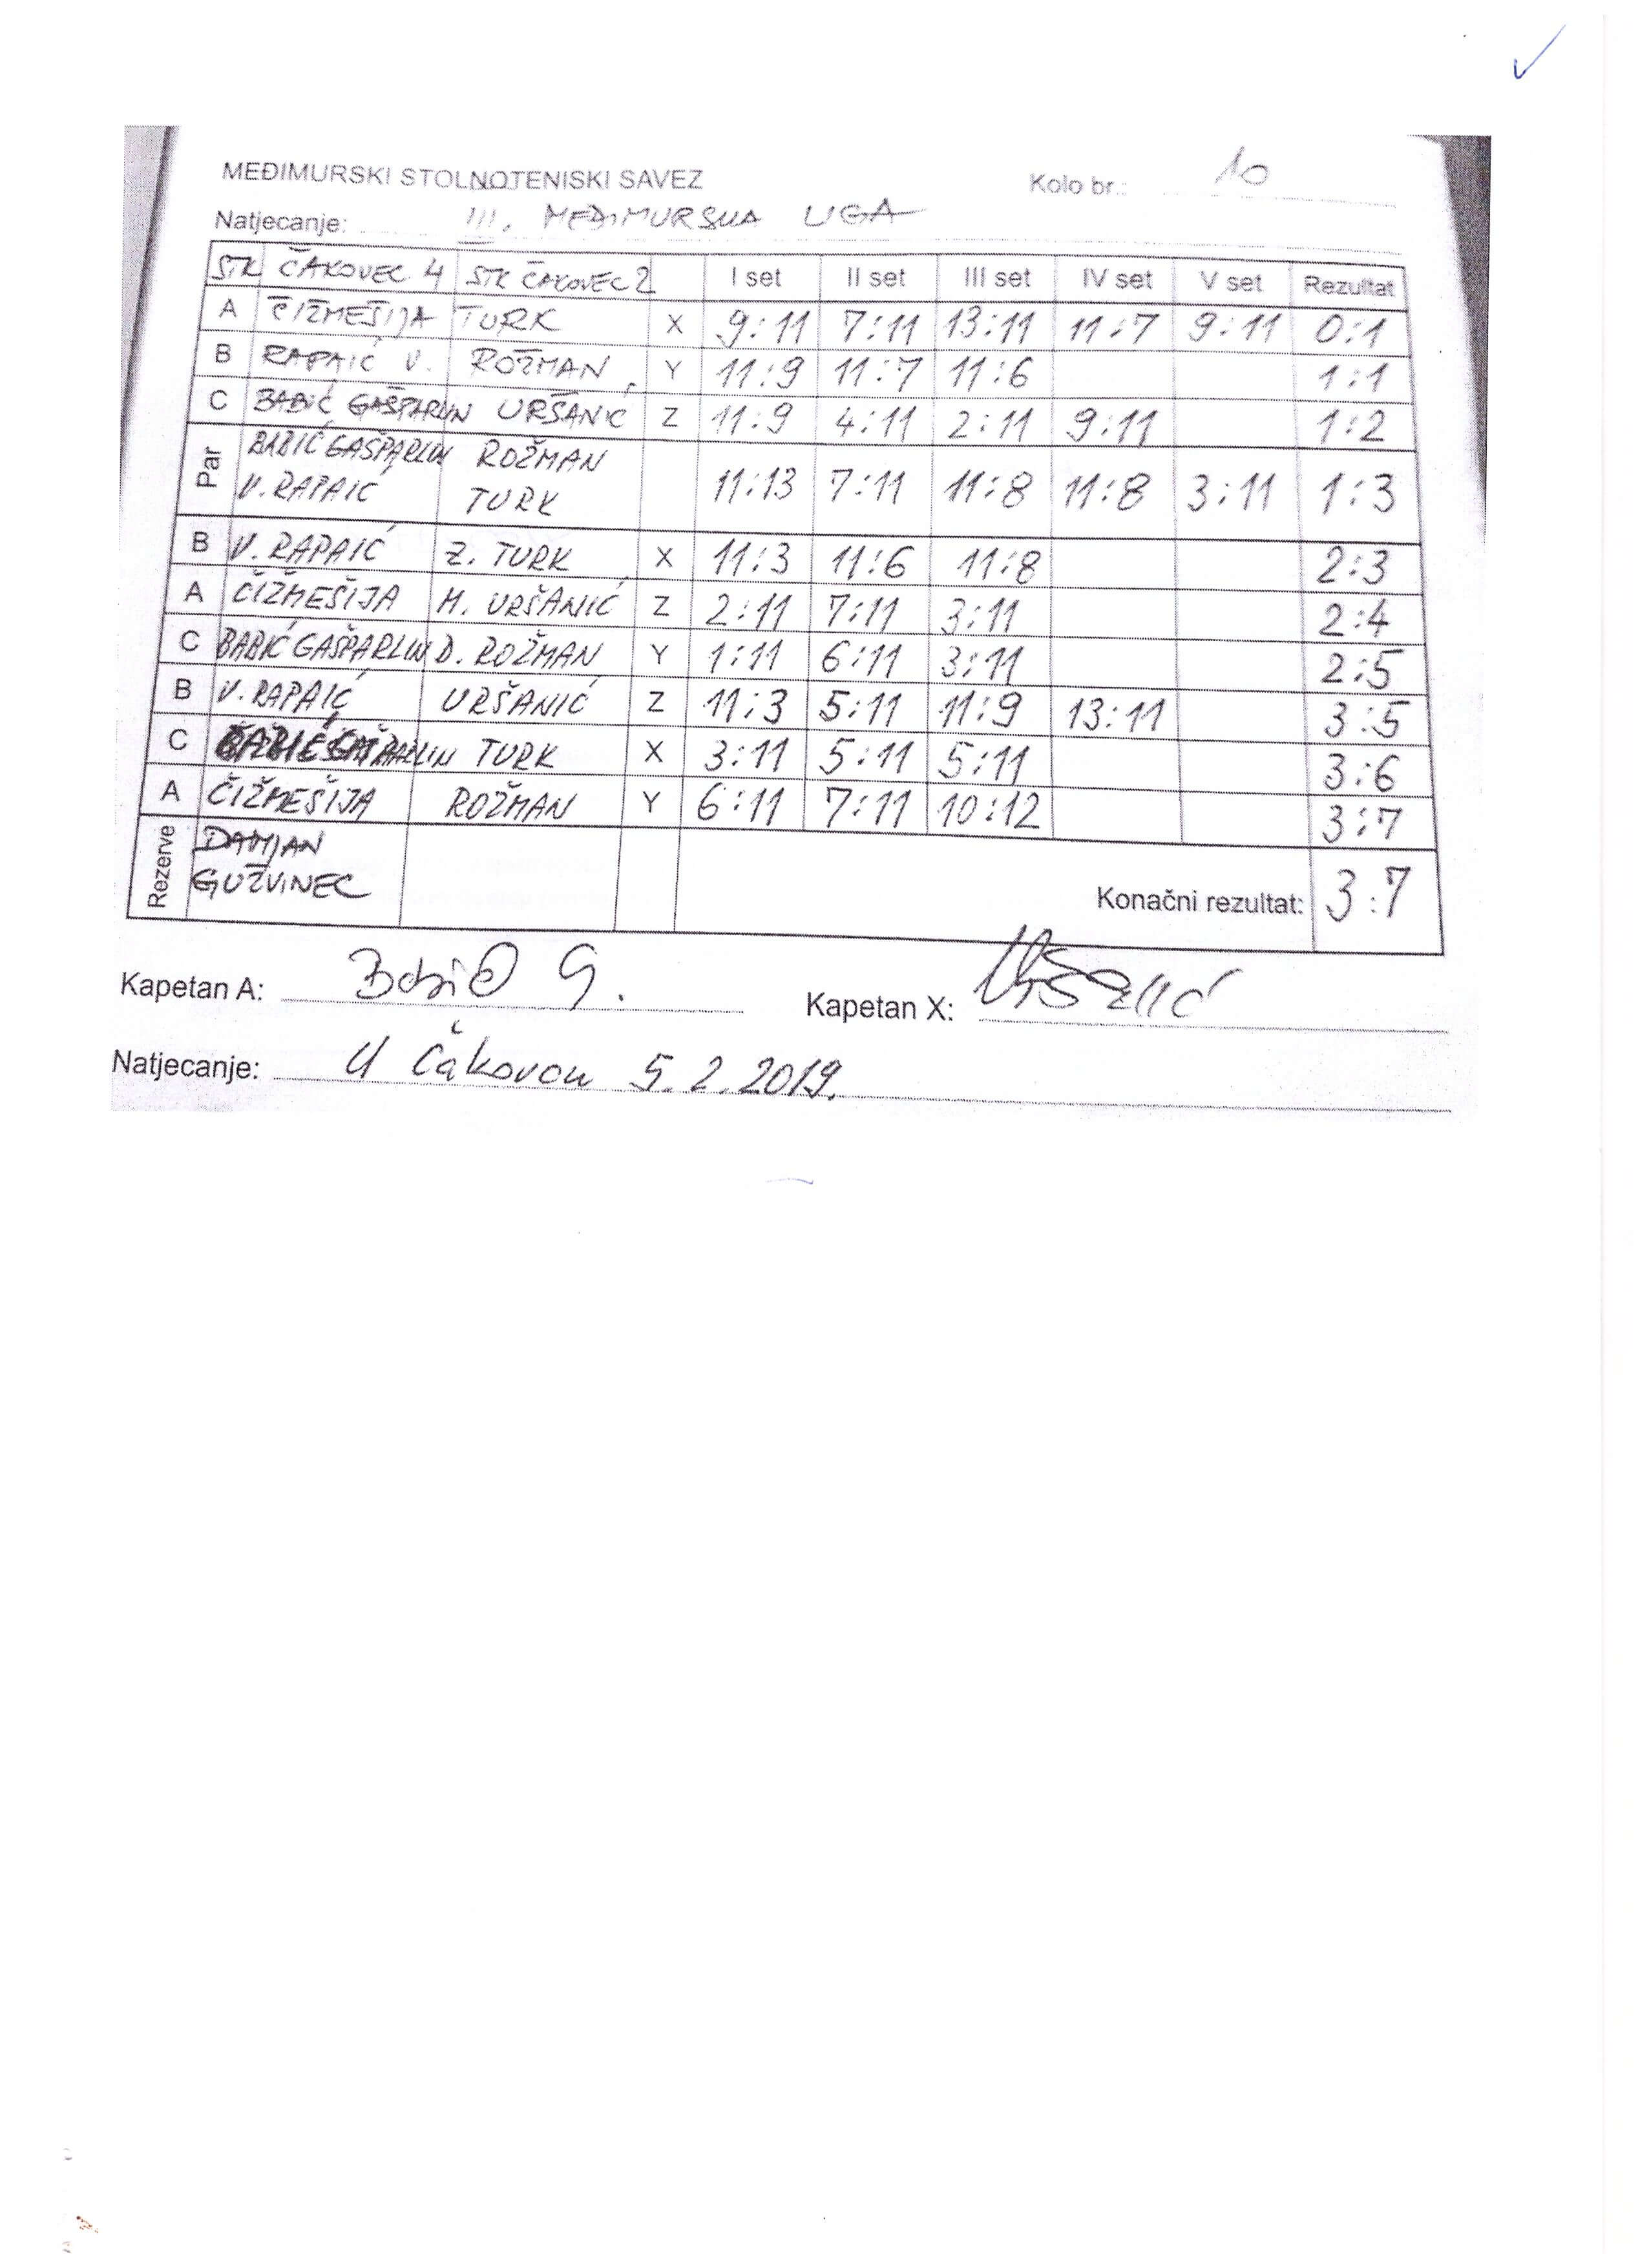 MEĐIMURSKI STOLNOTENISKI SAVEZ Kolo br.: 10
Natjecanje: III. MEĐIMURSKA LIGA
STK ČAKOVEC 4 STK ČAKOVEC 2 I set II set III set IV set V set Rezultat
A ČIŽMEŠIJA TURK X 9:11 7:11 13:11 11:7 9:11 0:1
B RAPAIĆ V. ROŽMAN Y 11:9 11:7 11:6 1:1
C BABIĆ GAŠPARLIN URŠANIĆ Z 11:9 4:11 2:11 9:11 1:2
Par BABIĆ GAŠPARLIN ROŽMAN
V. RAPAIĆ TURK 11:13 7:11 11:8 11:8 3:11 1:3
B V. RAPAIĆ Z. TURK X 11:3 11:6 11:8 2:3
A ČIŽMEŠIJA M. URŠANIĆ Z 2:11 7:11 3:11 2:4
C BABIĆ GAŠPARLIN D. ROŽMAN Y 1:11 6:11 3:11 2:5
B V. RAPAIĆ URŠANIĆ Z 11:3 5:11 11:9 13:11 3:5
C BABIĆ GAŠPARLIN TURK X 3:11 5:11 5:11 3:6
A ČIŽMEŠIJA ROŽMAN Y 6:11 7:11 10:12 3:7
Rezerve DAMJAN
GUŽVINEC Konačni rezultat: 3:7
Kapetan A: Babić G. Kapetan X: Uršanić
Natjecanje: U Čakovcu 5.2.2019.